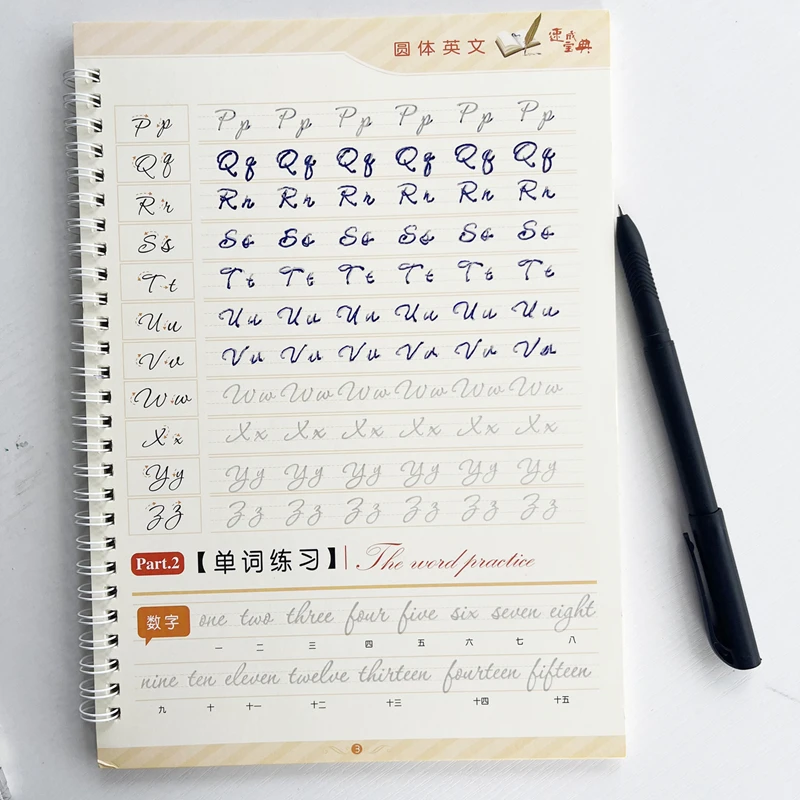 圆体英文 速成宝典
Pp Pp Pp Pp Pp Pp Pp
Qq Qq Qq Qq Qq Qq Qq
Rr Rr Rr Rr Rr Rr Rr
Ss Ss Ss Ss Ss Ss Ss
Tt Tt Tt Tt Tt Tt Tt
Uu Uu Uu Uu Uu Uu Uu
Vv Vv Vv Vv Vv Vv Vv
Ww Ww Ww Ww Ww Ww Ww
Xx Xx Xx Xx Xx Xx Xx
Yy Yy Yy Yy Yy Yy Yy
Zz Zz Zz Zz Zz Zz Zz
Part.2 【单词练习】 The word practice
数字 one two three four five six seven eight
一 二 三 四 五 六 七 八
nine ten eleven twelve thirteen fourteen fifteen
九 十 十一 十二 十三 十四 十五
3